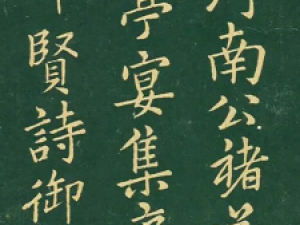 南公褚
亭宴集
賢詩御